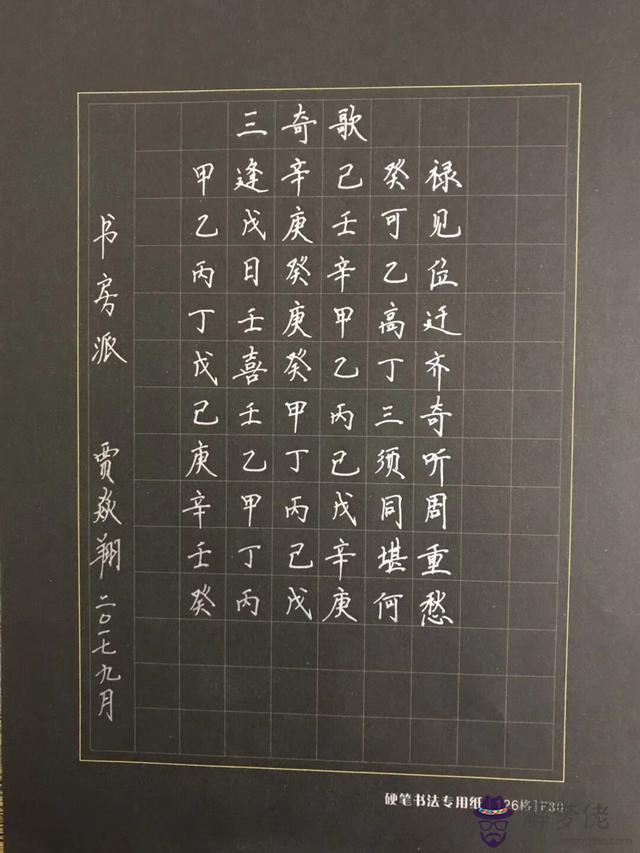 三奇歌
甲逢辛己癸禄
乙戊庚壬可见
丙日癸辛乙位
丁壬庚甲高迁
戊喜癸乙丁齐
己壬甲丙三奇
庚乙丁己须听
辛甲丙戊同周
壬丁己辛堪重
癸丙戊庚何愁
书房派 贾焱翔 二〇一七九月
硬笔书法专用纸